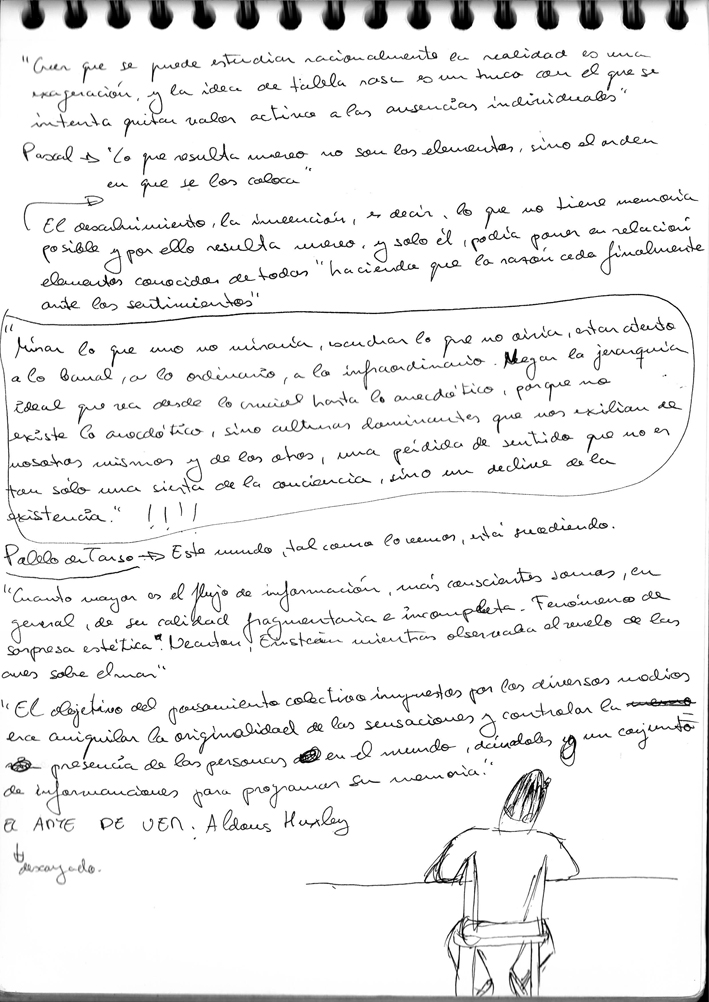 "Creer que se puede estudiar racionalmente la realidad es una
exageración, y la idea de tabla rasa es un truco con el que se
intenta quitar valor activo a las ausencias individuales"
Pascal → "Lo que resulta nuevo no son los elementos, sino el orden
en que se los coloca"
El descubrimiento, la invención, es decir, lo que no tiene memoria
posible y por ello resulta nuevo, y solo él, podía poner en relación
elementos conocidos de todos "haciendo que la razón ceda finalmente
ante los sentimientos"
"Mirar lo que uno no miraría, escuchar lo que no oiría, estar atento
a lo banal, a lo ordinario, a lo infraordinario. Negar la jerarquía
ideal que va desde lo crucial hasta lo anecdótico, porque no
existe lo anecdótico, sino culturas dominantes que nos exilian de
nosotros mismos y de los otros, una pérdida de sentido que no es
tan sólo una siesta de la conciencia, sino un declive de la
existencia." !!!!
Pablo de Tarso → Este mundo, tal como lo vemos, está sucediendo.
"Cuanto mayor es el flujo de información, más conscientes somos, en
general, de su calidad fragmentaria e incompleta. Fenómeno de
sorpresa estética". Newton, Einstein mientras observaba el vuelo de las
aves sobre el mar"
"El objetivo del pensamiento colectivo impuestos por los diversos medios
era aniquilar la originalidad de las sensaciones y controlar la
presencia de las personas en el mundo, dándoles un conjunto
de informaciones para programar su memoria."
EL ARTE DE VER: Aldous Huxley